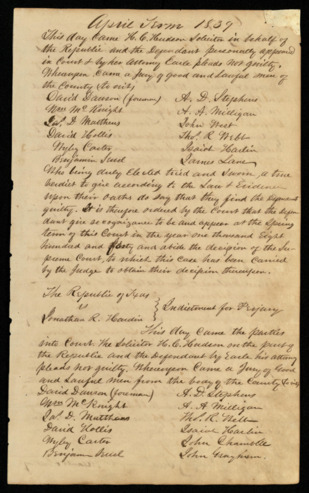 April Term 1839
This day Came H. C. Hudson Solicitor in behalf of
the Republic and the Defendant personally appeared
in Court & by her Attorney Earle pleads not guilty.
Whereupon Came a Jury of Good and Lawful men of
the County (to wit)
David Dawson (foreman) A. D. Stephens
Wm McKnight A. A. Milligan
Jas. D. Matthews John West
David Hollis Thos. R. Webb
Wyly Carter Isaiah Harlin
Benjamin James Lane
Who being duly Elected tried and Sworn a true
verdict to give according to the Law & Evidence
upon their oaths do say that they find the Defendant
guilty. It is therefore ordered by the Court that the Defen
dant give recognizance to be and appear at the Spring
term of this Court in the year one thousand Eight
hundred and forty and abide the decision of the Su
preme Court to which this case has been Carried
by the Judge to obtain their decision thereupon.
The Republic of Texas
vs Indictment for Perjury
Jonathan R. Hardin
This day Came the parties
into Court the Solicitor H. C. Hudson on the part of
the Republic and the Defendant by Earle his attorney
pleads not guilty. Whereupon Came a Jury of Good
and Lawful men from the body of the County (to wit)
David Dawson (foreman) A. D. Stephens
Wm McKnight A. A. Milligan
Jas. D. Matthews Thos. R. Webb
David Hollis Isaiah Harlin
Wyly Carter John
Benjamin John